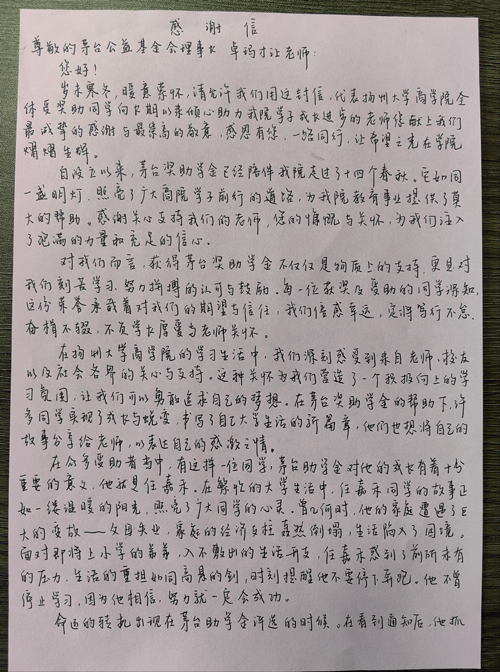 感谢信
尊敬的茅台公益基金会理事长 卓玛才让老师：
您好！
岁末寒冬，暖意萦怀，请允许我们用这封信，代表扬州大学商学院全
体受奖助同学向长期以来倾心助力我院学子成长进步的老师您献上我们
最诚挚的感谢与最崇高的敬意，感恩有您，一路同行，让希望之光在学院
熠熠生辉。
自设立以来，茅台奖助学金已经陪伴我院走过了十四个春秋。它如同
一盏明灯，照亮了广大商院学子前行的道路，为我院教育事业提供了莫
大的帮助。感谢关心支持我们的老师，您的慷慨与关怀，为我们注入
了饱满的力量和充足的信心。
对我们而言，获得茅台奖助学金不仅仅是物质上的支持，更是对
我们刻苦学习、努力拼搏的认可与鼓励。每一位获奖及受助的同学深知，
这份荣誉承载着对我们的期望与信任，我们倍感幸运，定将笃行不怠、
奋楫不辍，不负学长厚爱与老师关怀。
在扬州大学商学院的学习生活中，我们深刻感受到来自老师、校友
以及社会各界的关心与支持。这种关怀为我们营造了一个积极向上的学
习氛围，让我们可以勇敢追求自己的梦想。在茅台奖助学金的帮助下，许
多同学实现了成长与蜕变，书写了自己大学生活的新篇章，他们也想将自己的
故事分享给老师，以表达自己的感激之情。
在众多受助者当中，有这样一位同学，茅台助学金对他的成长有着十分
重要的意义，他就是任嘉禾。在繁忙的大学生活中，任嘉禾同学的故事正
如一缕温暖的阳光，照亮了广大同学的心灵。曾几何时，他的家庭遭遇了巨
大的变故——父母失业，家庭的经济支柱轰然倒塌，生活陷入了困境。
面对即将上小学的弟弟，入不敷出的生活开支，任嘉禾感到了前所未有
的压力，生活的重担如同高悬的剑，时刻提醒他不要停下奔跑。他不曾
停止学习，因为他相信，努力就一定会成功。
命运的转机出现在茅台助学金评选的时候。在看到通知后，他抓